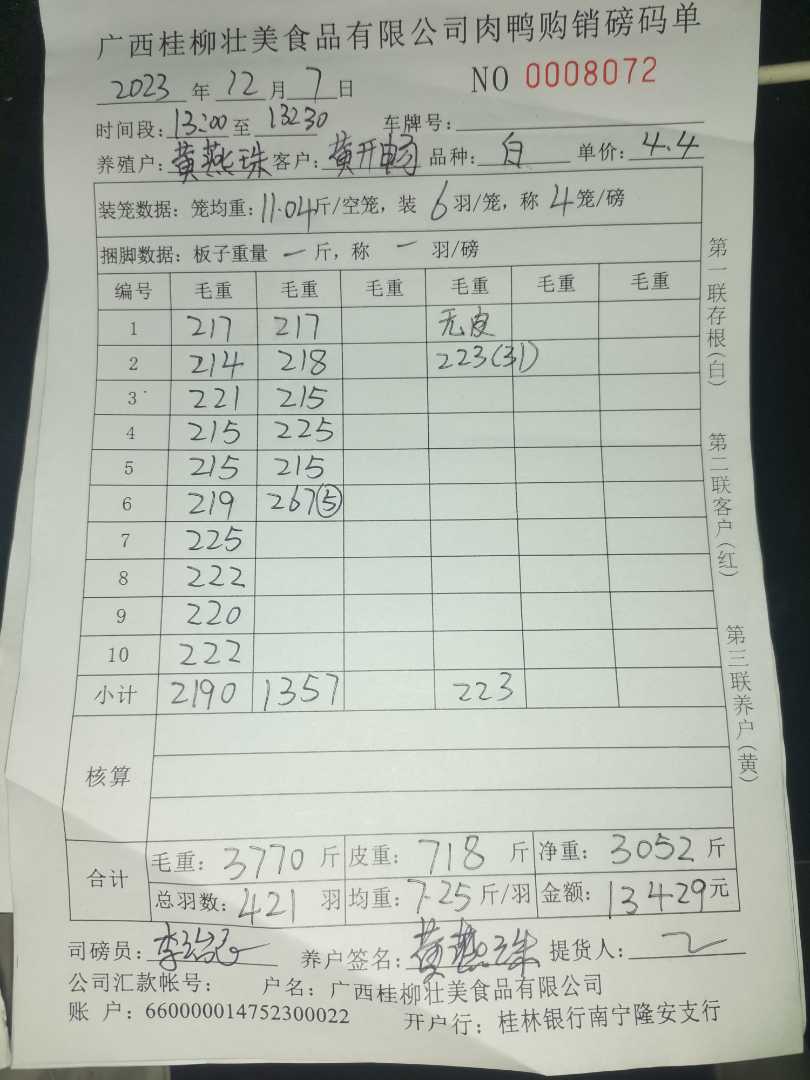 广西桂柳壮美食品有限公司肉鸭购销磅码单
2023 年 12 月 7 日 NO 0008072
时间段：13:00 至 13230 车牌号：
养殖户：黄燕珠 客户：黄开畅 品种：白 单价：4.4
装笼数据：笼均重：11.04斤/空笼，装 6 羽/笼，称 4 笼/磅
捆脚数据：板子重量 一 斤，称 一 羽/磅
编号 毛重 毛重 毛重 毛重 毛重 毛重
1 217 217 无皮
2 214 218 223(31)
3 221 215
4 215 225
5 215 215
6 219 267⑤
7 225
8 222
9 220
10 222
小计 2190 1357 223
核算
合计 毛重：3770 斤 皮重：718 斤 净重：3052 斤
总羽数：421 羽 均重：7.25 斤/羽 金额：13429 元
司磅员： 养户签名：黄燕珠 提货人：
公司汇款帐号： 户名：广西桂柳壮美食品有限公司
账 户：660000014752300022 开户行：桂林银行南宁隆安支行
第一联存根（白）
第二联客户（红）
第三联养户（黄）